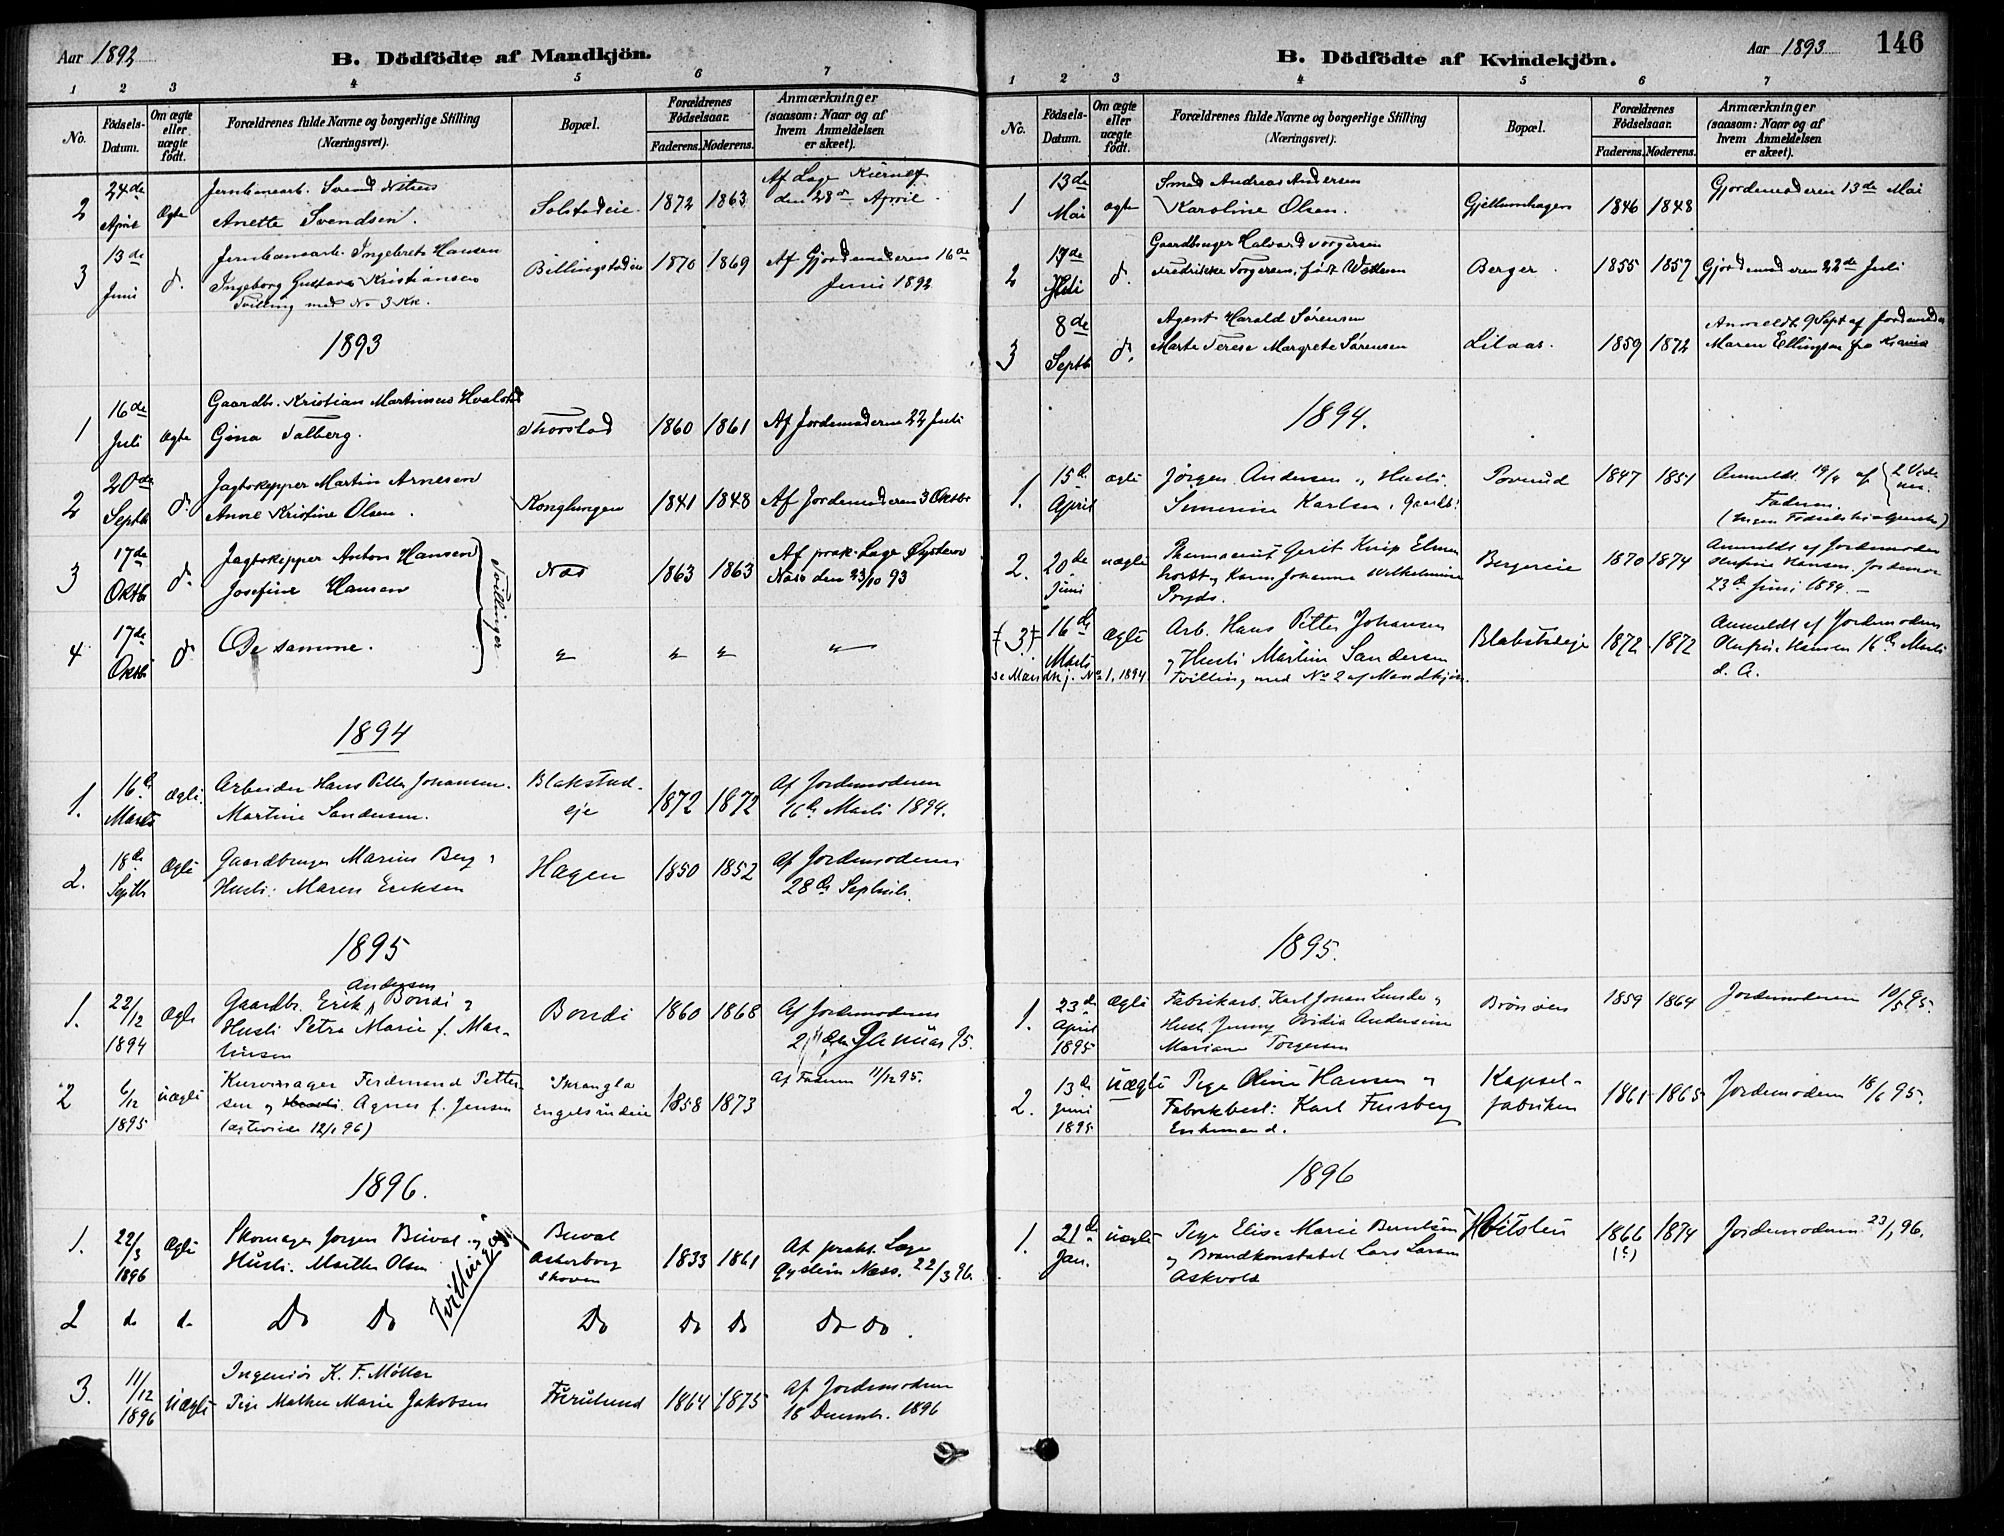 Aar 1892
B. Dödfödte af Mandkjön.
1 2 3 4 5 6 7
No.
Födsels-Datum.
Om ægte eller uægte født.
Forældrenes fulde Navne og borgerlige Stilling
(Næringsvei).
Bopæl.
Forældrenes Fødselsaar.
Faderens. Moderens.
Anmærkninger
(saasom: Naar og af
hvem Anmeldelsen
er skeet).
2 24de April Ægte
Jernbanearb. Svend
Anette Svendsen.
Solstadeie. 1872 1863
Af Læge
den 28de April.
3 13de Juni d.
Jernbanearb. Ingebret Hansen
Ingeborg Gustava Kristiansen
Tvilling med No 3 Kk.
Billingstadeie 1870 1869
Af Gjordemoderen 16de
Juni 1892
1893
1 16de Juli Ægte
Gaardbr. Kristian Martinsen Hvalstad
Gina Talberg.
Thorstad 1860 1861 Af Jordemoderen 22 Juli
2 20de Septbr d.
Jagtskipper Martin Arnesen
Anne Kristine Olsen.
Konglungen 1841 1848 Af Jordemoderen 3 Oktbr
3 17de Oktbr d.
Jagtskipper Anton Hansen
Josefine Hansen
Tvillinger
Næs 1863 1863
Af prak. Læge Øystein
Næss den 23/10 93
4 17de Oktbr d.
De samme.
" " " "
1894
1. 16de Marts Ægte.
Arbeider Hans Petter Johansen.
Martine Sandersen.
Blakstad-
eje
1872 1872
Af Jordemoderen
16de Marts 1894.
2. 18de Septbr Ægte
Gaardbruger Marius Berg,
Hustr. Maren Eriksen
Hagen 1850 1852
Af Jordemoderen
28de Septbr.
1895
1. 22/12 1894 Ægte
Andersen
Gaardbr. Erik Bondi og
Hustr. Petra Marie f. Mar-
tinsen
Bondi 1860 1868
Af Jordemoderen
95.
2 6/12 1895 uægte
Kurvmager Ferdinand Petter-
sen og Hustr. Agnes f. Jensen
12/1 96)
Engelsrudeie 1858 1873
Af Faderen 11/12 95.
1896.
1. 22/3 1896 Ægte
Skomager Jørgen Buval og
Hustr. Marthe Olsen
Tvillinger
Buval
Askerborg
skoven
1833 1861
Af prakt. Læge
Øystein Næss. 22/3 96.
2 do do Do Do Do Do Do Do Do.
3. 11/12 1896 Uægte
Ingeniør K. F. Møller
Pige Mathea Marie Jakobsen
Furulund 1864 1875
Af Jordemoderen
18 Decembr. 1896
B. Dödfödte af Kvindekjön.
Aar 1893 146
1 2 3 4 5 6 7
No.
Födsels-Datum.
Om ægte eller uægte födt.
Forældrenes fulde Navne og borgerlige Stilling
(Næringsvei).
Bopæl.
Forældrenes Fødselsaar.
Faderens. Moderens.
Anmærkninger
(saasom: Naar og af
hvem Anmeldelsen
er skeet).
1 13de Mai ægte
Smed Andreas Andersen
Karoline Olsen.
Gjellumhagen 1846 1848 Gjordemoderen 13de Mai
2 17de Juli d.
Gaardbruger Halvard Torgersen
Fredrikke Torgersen, født
Berger. 1855 1857 Gjordemoderen 22de Juli
3 8de Septbr d.
Agent Harald Sørensen
Marte Terese Margrete Sørensen
Lilaas. 1859 1872
Anmeldt 9 Sept af Jordemoder
Maren Ellingsen fra Krania
1894.
1. 15de April ægte
Jørgen Andersen og Hustr.
Karlsen,
1847 1851
Anmeldt 19/4 af
Faderen.
2. 20de Juni uægte
Pharmaceut Gerit Knip
horst og Karen Johanne Wilhelmine
Pryds.
Bergereie 1870 1874
Anmeldt af Jordemoder
Olufine Hansen.
23de Juni 1894.
3. 16de Marts Ægte
Arb. Hans Petter Johansen
og Hustr. Martine Sandersen
Tvilling med No 2 af Mandkjøn.
se Mandkj. No 1. 1894
Blakstadeje 1872 1872
Anmeldt af Jordemoder
Olufine Hansen 16de Marts
d. A.
1895.
1. 23de April 1895 Ægte
Fabrikarb. Karl Johan Lunde og
Hustr. Jenny Ovidia Andersine
Mariane Torgersen
Brønøen 1859 1864 Jordemoderen 10/5 95.
2. 13de Juni 1895 uægte
Pige Oline Hansen og
Fabrikbest: Karl Fussberg
Enkemand.
Kapsel-
fabriken
1861 1865 Jordemoderen 18/6 95.
1896
1. 21de Jan. uægte
Pige Elise Marie Berntsen
og Brandkonstabel Lars Larsen
Askvold
Hvitsten 1866 (?) 1874 Jordemoderen 23/1 96.